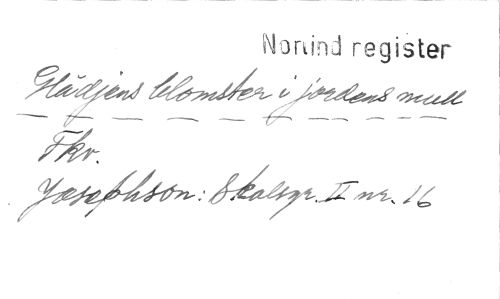 Norlind register
Glädjens blomster i jordens mull
Fkv.
Josephson: Skalsgr. II nr. 16